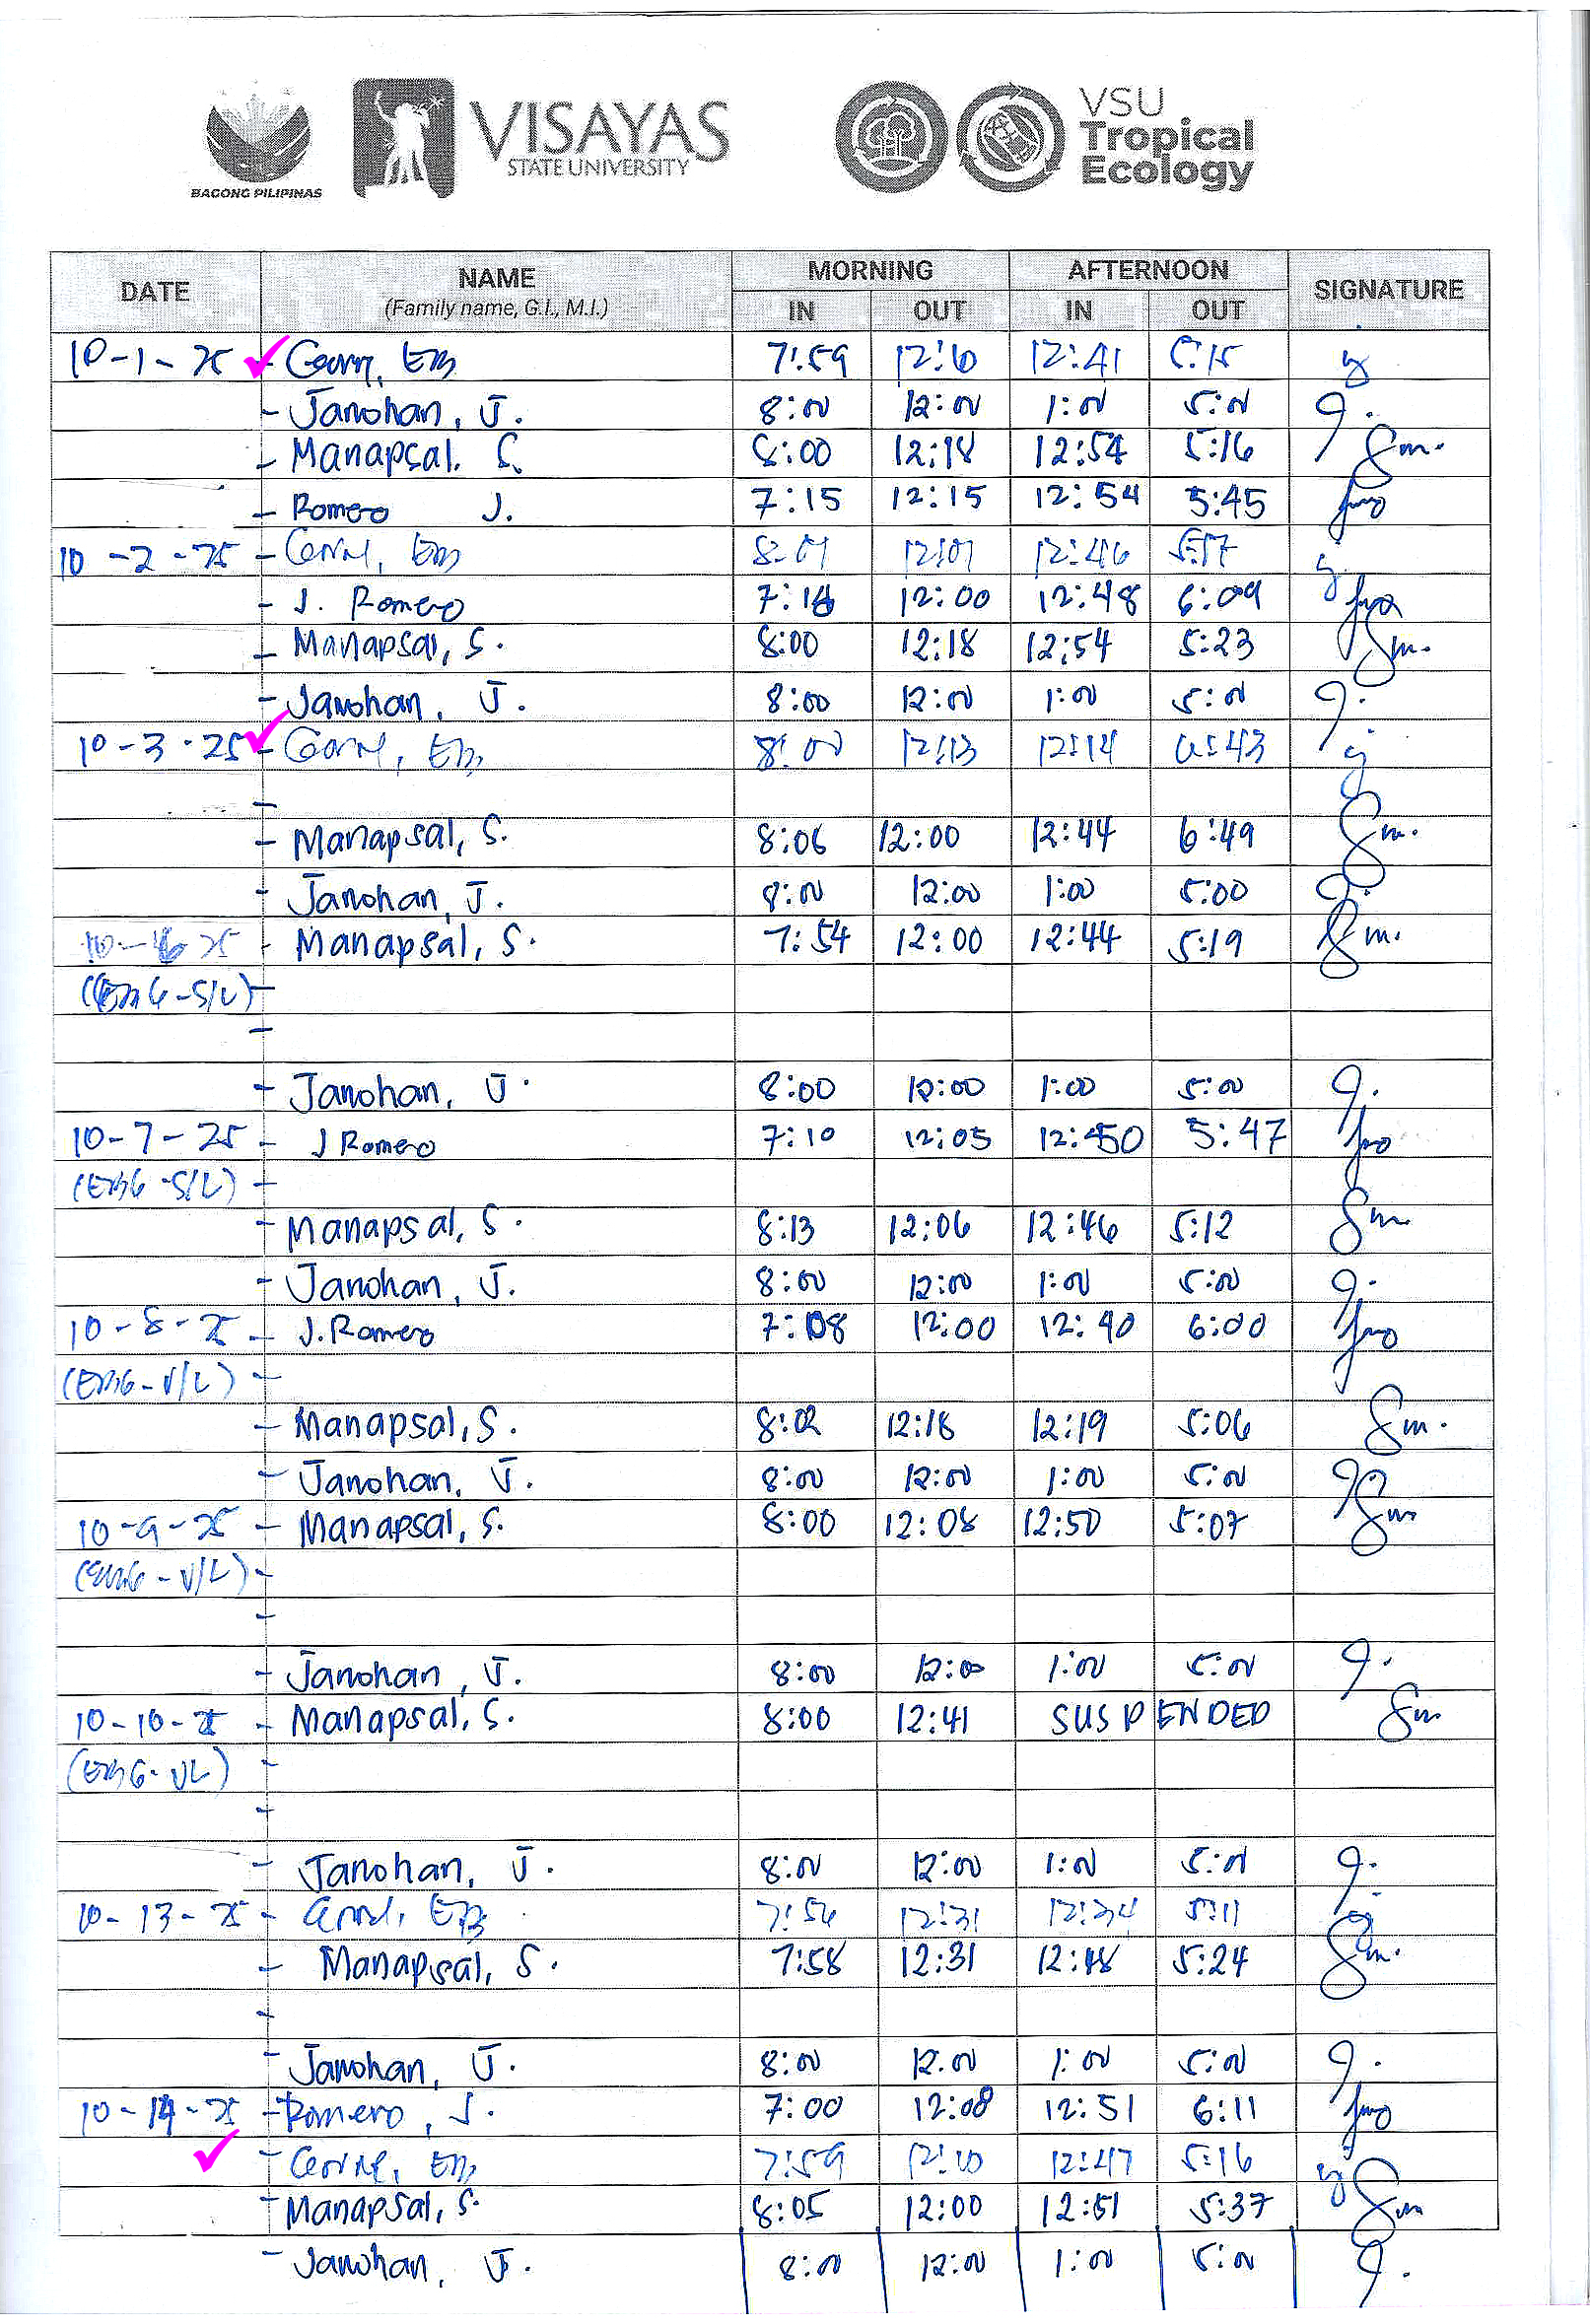 BAGONG PILIPINAS
VISAYAS
STATE UNIVERSITY
VSU
Tropical
Ecology
DATE NAME MORNING AFTERNOON SIGNATURE
(Family name, G.I., M.I.) IN OUT IN OUT
10-1-25 7:59 12:41 5:15
- Janohan, J. 8:00 12:00 1:00 5:00
- Manapsal, S. 8:00 12:18 12:54 5:16 Sm.
- Romero J. 7:15 12:15 12:54 5:45
10-2-25 - 12:07 12:46 5:17
- J. Romero 12:00 12:48 6:09
- Manapsal, S. 8:00 12:18 12:54 5:23 Sm.
- Janohan, J. 8:00 12:00 1:00 5:00
10-3-25 - 8:00 12:13 12:14
-
- Manapsal, S. 8:06 12:00 12:44 6:49 Sm.
- Janohan, J. 8:00 12:00 1:00 5:00
10-6-25 - Manapsal, S. 7:54 12:00 12:44 5:19 Sm.
(EMG-S/L) -
-
- Janohan, J. 8:00 12:00 1:00 5:00
10-7-25 - J Romero 7:10 12:05 12:50 5:47
(EMG-S/L) -
- Manapsal, S. 8:13 12:06 12:46 5:12 Sm
- Janohan, J. 8:00 12:00 1:00 5:00
10-8-25 - J. Romero 7:08 12:00 12:40 6:00
(EMG-V/L) -
- Manapsal, S. 8:02 12:18 12:19 5:06 Sm.
- Janohan, J. 8:00 12:00 1:00 5:00
10-9-25 - Manapsal, S. 8:00 12:08 12:50 5:07 Sm
(EMG-V/L) -
-
- Janohan, J. 8:00 12:00 1:00 5:00
10-10-25 - Manapsal, S. 8:00 12:41 SUSPENDED Sm
(EMG-VL) -
-
- Janohan, J. 8:00 12:00 1:00 5:00
10-13-25 - 7:56 12:31 12:34 5:11
- Manapsal, S. 7:58 12:31 12:48 5:24 Sm.
-
- Janohan, J. 8:00 12:00 1:00 5:00
10-14-25 - Romero, J. 7:00 12:08 12:51 6:11
- 7:59 12:10 12:47 5:16
- Manapsal, S. 8:05 12:00 12:51 5:37 Sm
- Janohan, J. 8:00 12:00 1:00 5:00